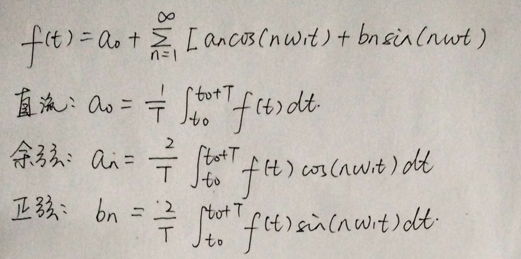 f(t) = a₀ + ∑_{n=1}^{∞} [ aₙcos(nω₁t) + bₙsin(nωt)
直流: a₀ = 1/T ∫_{t₀}^{t₀+T} f(t) dt.
余弦: aₙ = 2/T ∫_{t₀}^{t₀+T} f(t) cos(nω₁t) dt
正弦: bₙ = 2/T ∫_{t₀}^{t₀+T} f(t) sin(nω₁t) dt.